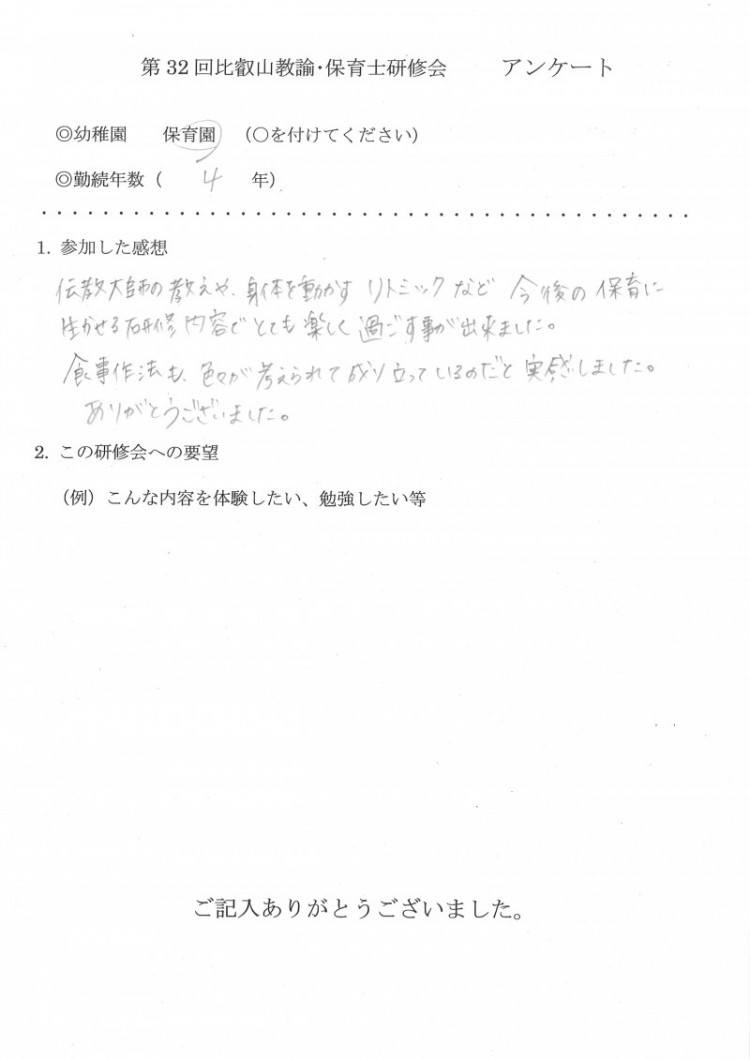 第32回比叡山教諭・保育士研修会　　アンケート
◎幼稚園　　保育園　（〇を付けてください）
◎勤続年数（　　4　　年）
・・・・・・・・・・・・・・・・・・・・・・・・・・・・・・・・・・・・・・・・・・・
1. 参加した感想
伝教大師の教えや、身体を動かす リトミック など 今後の保育に
生かせる研修内容でとても楽しく過ごす事が出来ました。
食事作法も、色々が考えられて成り立っているのだと実感しました。
ありがとうございました。
2. この研修会への要望
（例）こんな内容を体験したい、勉強したい等
ご記入ありがとうございました。